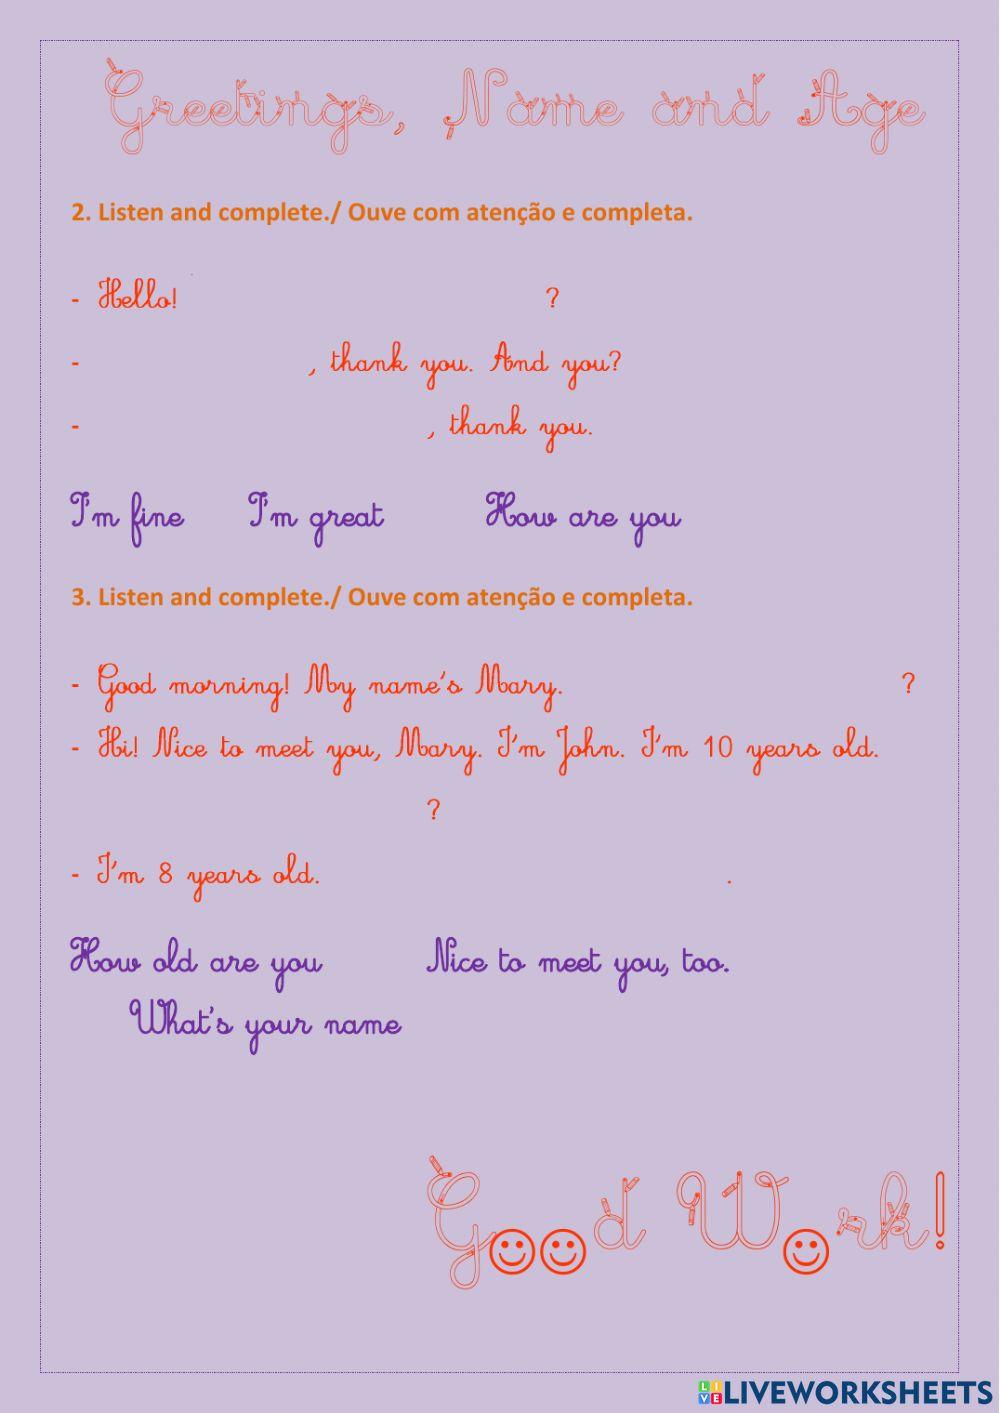 Greetings, Name and Age
2. Listen and complete./ Ouve com atenção e completa.
- Hello! ?
- , thank you. And you?
- , thank you.
I'm fine I'm great How are you
3. Listen and complete./ Ouve com atenção e completa.
- Good morning! My name's Mary. ?
- Hi! Nice to meet you, Mary. I'm John. I'm 10 years old.
?
- I'm 8 years old. .
How old are you Nice to meet you, too.
What's your name
Good Work!
LIVE LIVEWORKSHEETS